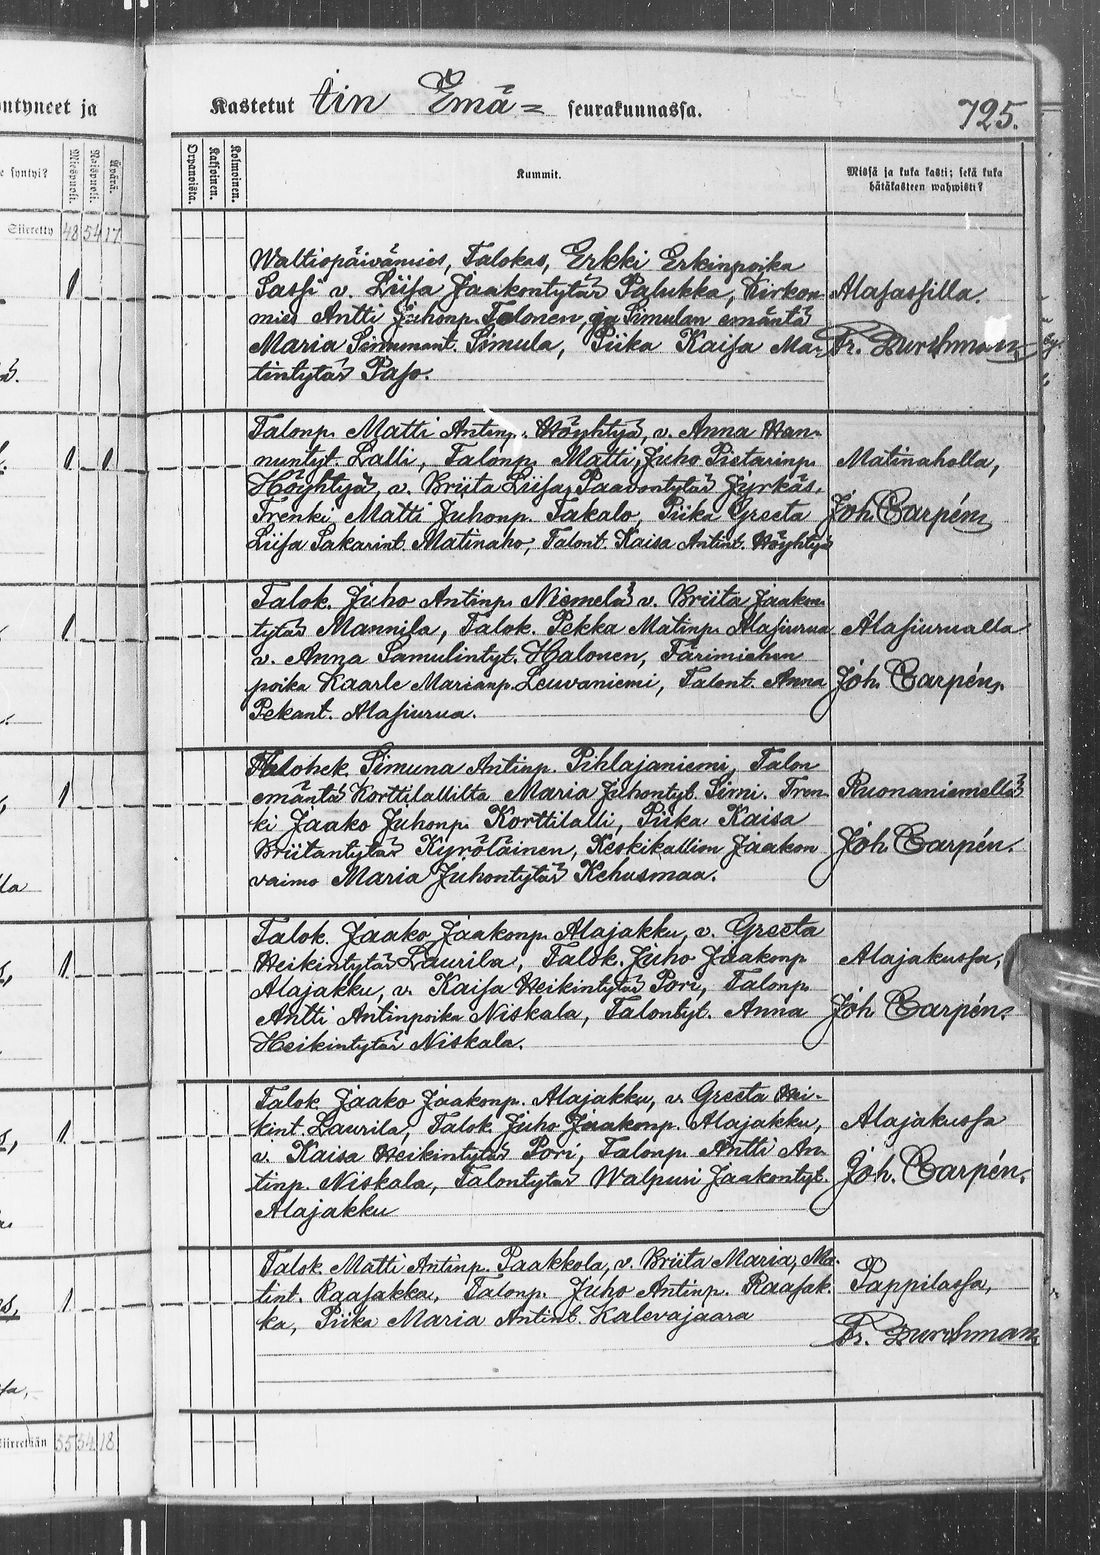 ntyneet ja
Kastetut Iin Emä= seurakunnassa. 725.
e syntyi?
Miespuoli.
Naispuoli.
Äpärä.
Orpanoista.
Kaksoinen.
Kolmoinen.
Kummit.
Missä ja kuka kasti; sekä kuka
hätäkasteen wahwisti?
Siirretty 48 54 17
Waltiopäivämies, Talokas, Erkki Erkinpoika
Sassi v. Liisa Jaakontytär Palukka, Kirkon-
mies Antti Juhonp. Tolonen, ja Simulan emäntä
Maria Simunant. Simula, Piika Kaisa Ma-
tintytär Paso.
Alasassilla.
Fr. Durchman
1
Talonp. Matti Antinp. Höyhtyä, v. Anna Han-
nuntyt. Lalli, Talonp. Matti Juho Pietarinp.
Höyhtyä, v. Briita Liisa Paavontytär Jurkäs.
Trenki Matti Juhonp. Takalo, Piika Greeta
Liisa Sakarint. Matinaho, Talont. Kaisa Antint. Höyhtyä
Matinaholla,
Joh. Carpén,
1 1
Talok. Juho Antinp. Niemelä v. Briita Jaakon-
tytär Mannila, Talok. Pekka Matinp. Alasiurua
v. Anna Samulintyt. Halonen, Färimiehen
poika Kaarle Marianp. Leuvaniemi, Talont. Anna
Pekant. Alasiurua.
Alasiurualla
Joh. Carpén,
1
Talohek. Simuna Antinp. Pihlajaniemi, Talon
emäntä Korttilallilta Maria Juhontyt. Simi. Tren-
ki Jaako Juhonp. Korttilalli, Piika Kaisa
Briitantytär Kyröläinen, Keskikallion Jaakon
vaimo Maria Juhontytär Kehusmaa.
Ruonaniemellä
Joh Carpén.
1
Talok. Jaako Jaakonp. Alajakku, v. Greeta
Heikintytär Laurila, Talok. Juho Jaakonp
Alajakku, v. Kaisa Heikintytär Pori, Talonp.
Antti Antinpoika Niskala, Talontyt. Anna
Heikintytär Niskala.
Alajakussa,
Joh Carpén.
1
Talok Jaako Jaakonp. Alajakku, v. Greeta Hei-
kint. Laurila, Talok Juho Jaakonp. Alajakku,
v. Kaisa Heikintytär Pori, Talonp. Antti An-
tinp. Niskala, Talontytär Walpuri Jaakontyt.
Alajakku
Alajakussa
Joh. Carpén.
1
Talok. Matti Antinp. Paakkola, v. Briita Maria, Ma-
tint. Raasakka, Talonp. Juho Antinp. Raasak-
ka, Piika Maria Antint. Kalevajaara
Pappilassa,
Fr. Durchman
1
Siirretään 55 54 18